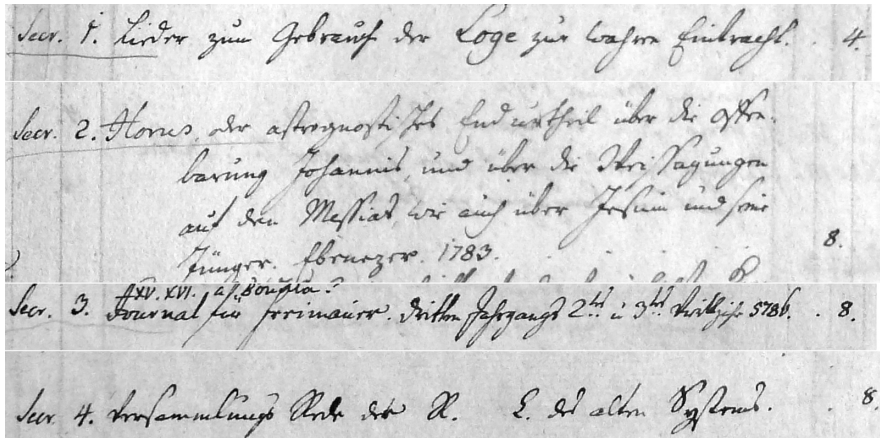 Secr. 1. Lieder zum Gebrauch der Loge zur wahren Eintracht. . 4.
Secr. 2. Horus, oder astrognostisches Endurtheil über die Offen-
barung Johannis, und über die Weissagungen
auf den Messias, wie auch über Jesum und seine
Jünger. Ebenezer. 1783. 8.
XV. XVI.
Secr. 3. Journal für Freimaurer. dritten Jahrgangs 2tes u 3tes 5786. . 8.
Secr. 4. Versammlungs Rede der R. L. des alten Systems. . 8.